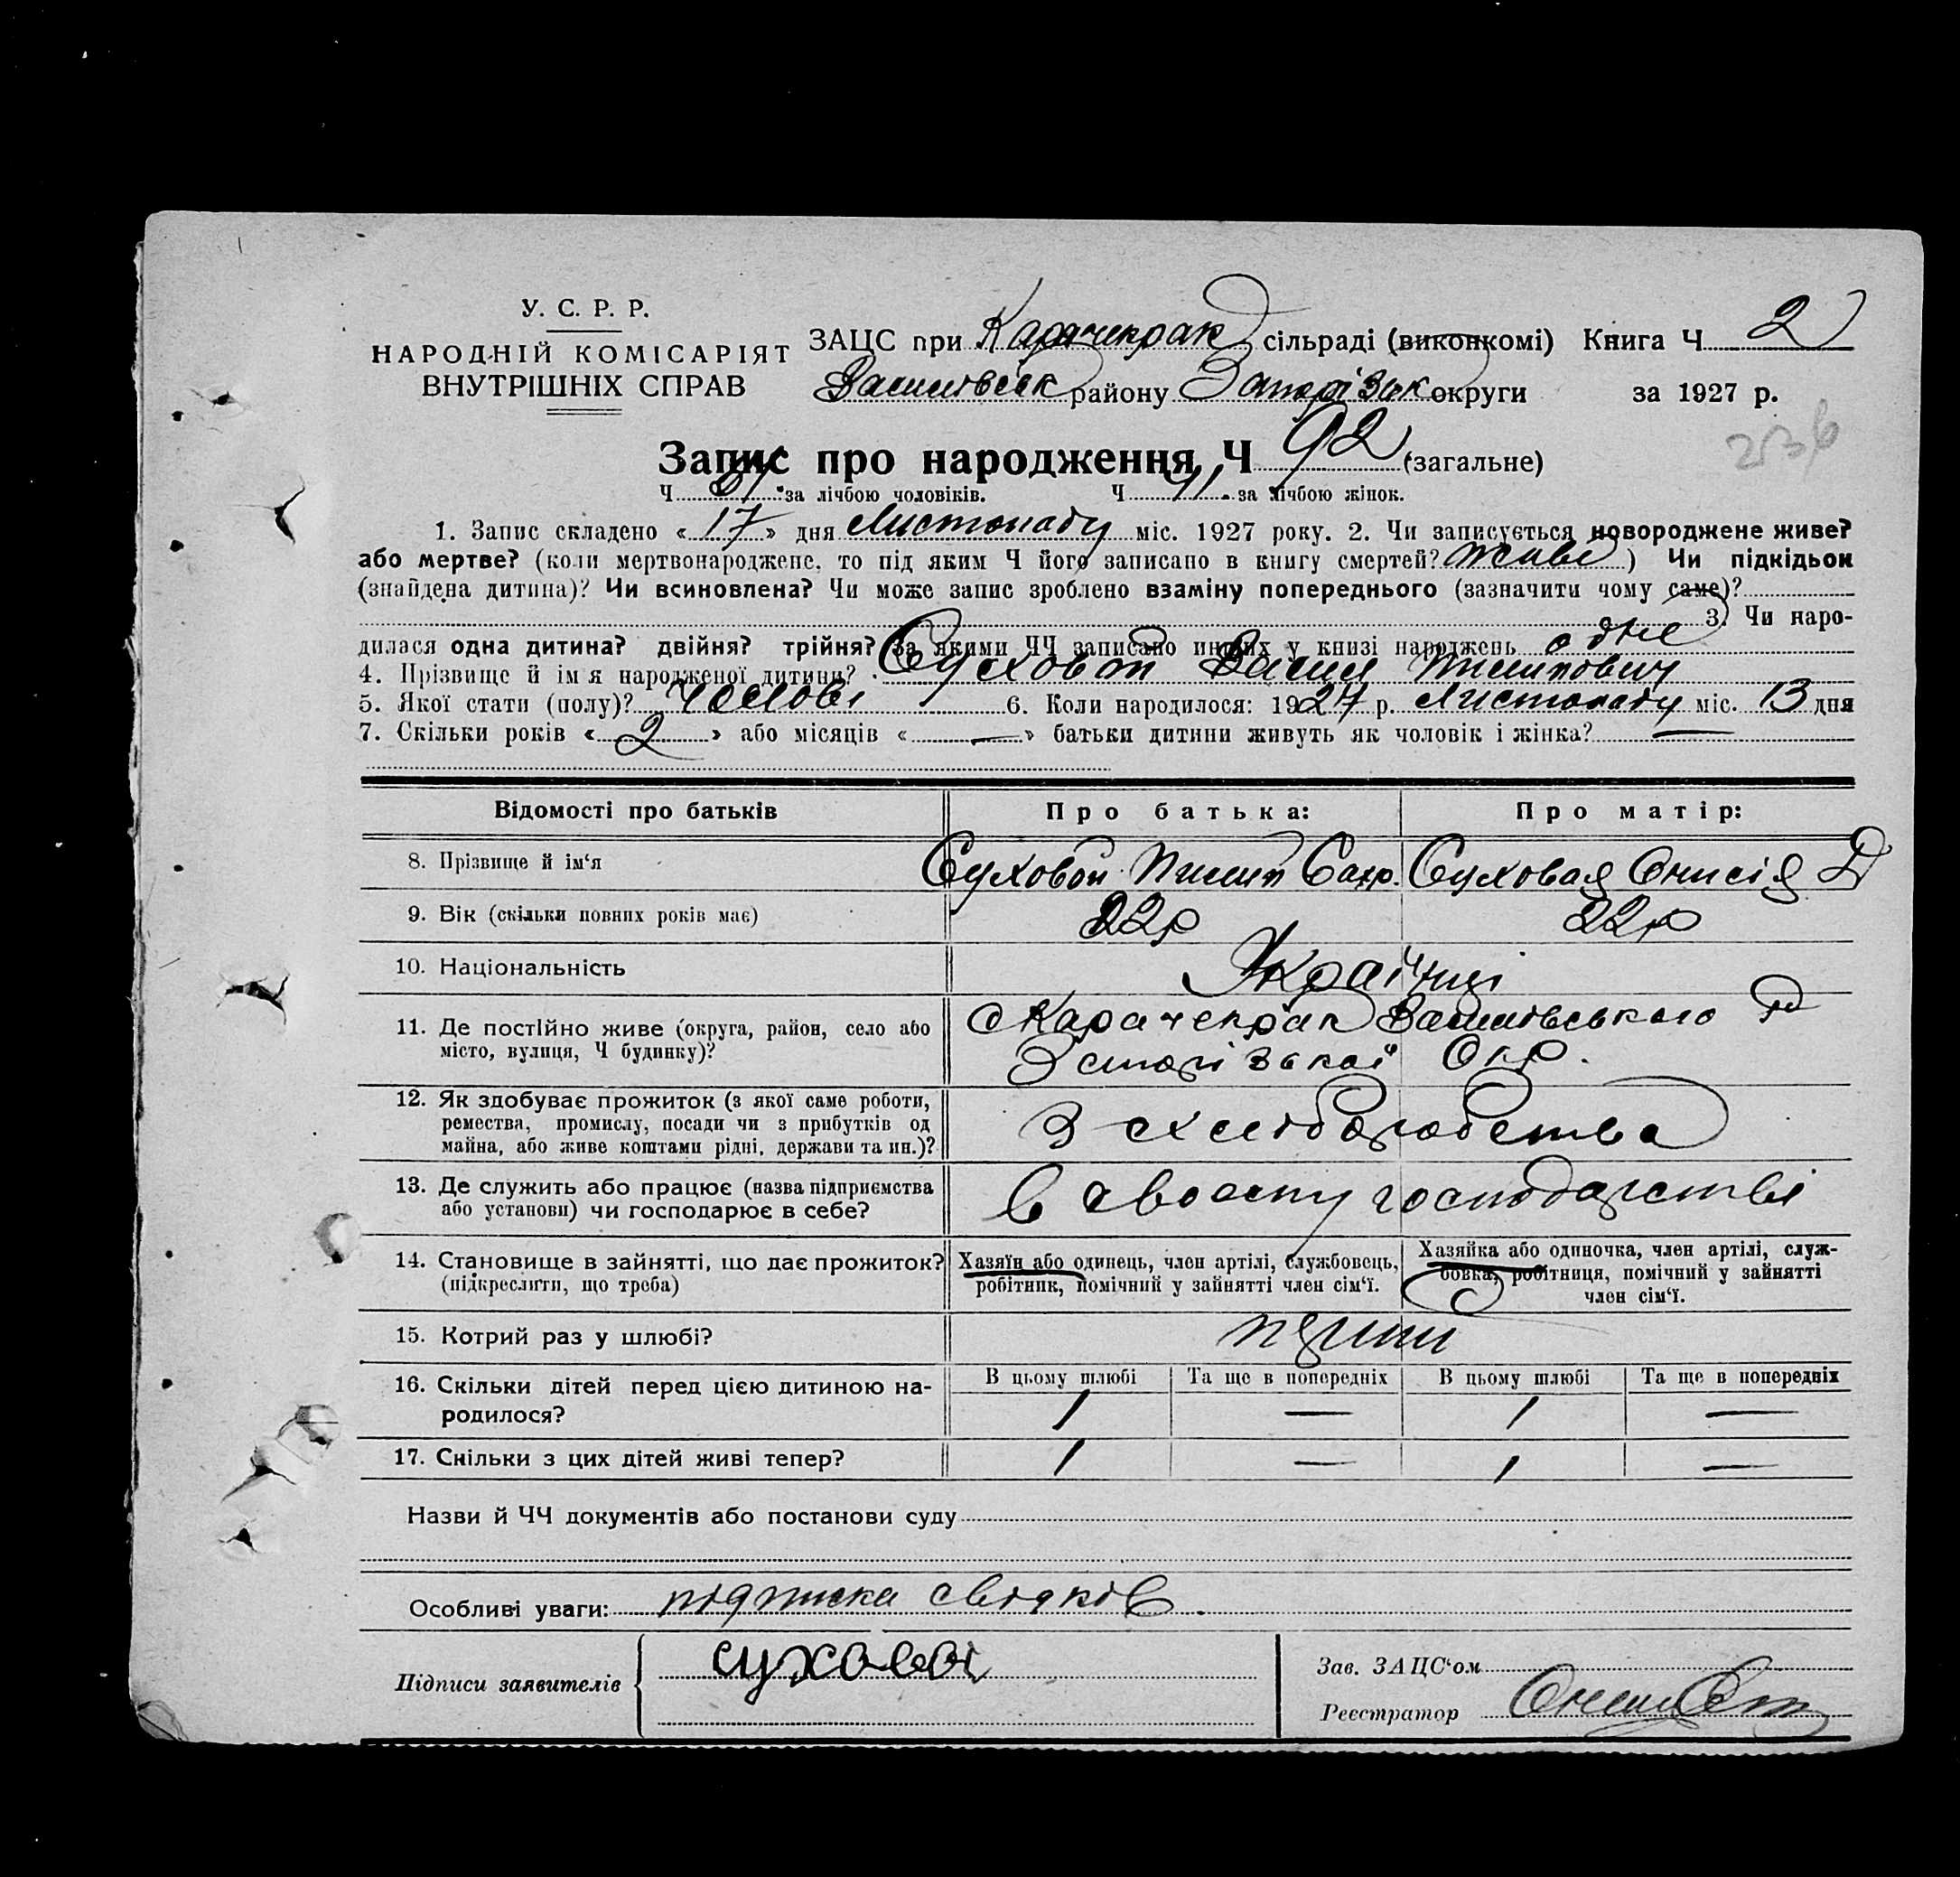 У. С. Р. Р.
НАРОДНІЙ КОМІСАРІЯТ
ВНУТРІШНІХ СПРАВ
ЗАЦС при Карачекрак сільраді (виконкомі) Книга Ч 2
Василівськ району Запорізьк округи за 1927 р.
236
Запис про народження Ч 92 (загальне)
Ч за лічбою чоловіків. Ч 41 за лічбою жінок.
1. Запис складено « 17 » дня Листопаду міс. 1927 року. 2. Чи записується новороджене живе?
або мертве? (коли мертвонароджене, то під яким Ч його записано в книгу смертей? живе ) Чи підкідьок
(знайдена дитина)? Чи всиновлена? Чи може запис зроблено взаміну попереднього (зазначити чому саме)?
3. Чи наро-
дилася одна дитина? двійня? трійня? За якими ЧЧ записано инших у книзі народжень одне
4. Прізвище й ім я народженої дитини? Суховой Васил Пилипович
5. Якої стати (полу)? чолові 6. Коли народилося: 1927 р. Листопаду міс. 13 дня
7. Скільки років « 2 » або місяців « — » батьки дитини живуть як чоловік і жінка? —
Відомості про батьків Про батька: Про матір:
8. Прізвище й ім‘я Суховой Пилип Сахр. Суховая Онисія Д
9. Вік (скільки повних років має) 22р 22р
10. Національність Українці
11. Де постійно живе (округа, район, село або
місто, вулиця, Ч будинку)?
с Карачекрак Василівського рд
Запорізької Окр.
12. Як здобуває прожиток (з якої саме роботи,
ремества, промислу, посади чи з прибутків од
майна, або живе коштами рідні, держави та ин.)?
З схліборобства
13. Де служить або працює (назва підприємства
або установи) чи господарює в себе?
в своему господарстві
14. Становище в зайнятті, що дає прожиток?
(підкреслити, що треба)
Хазяїн або одинець, член артілі, службовець,
робітник, помічний у зайнятті член сім‘ї.
Хазяйка або одиночка, член артілі, служ-
бовка, робітниця, помічний у зайнятті
член сім‘ї.
15. Котрий раз у шлюбі? перший
В цьому шлюбі Та ще в попередніх В цьому шлюбі Та ще в попередніх
16. Скільки дітей перед цією дитиною на-
родилося? 1 — 1 —
17. Скільки з цих дітей живі тепер? 1 — 1 —
Назви й ЧЧ документів або постанови суду
Особливі уваги: підписка свідків
Підписи заявителів суховоі
Зав. ЗАЦС‘ом
Реєстратор